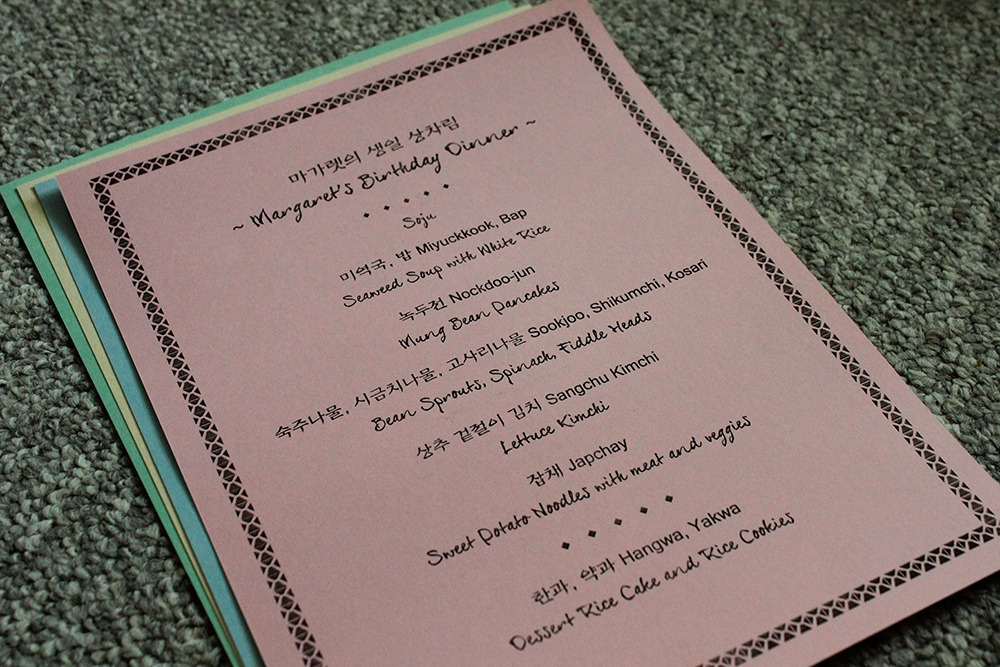 마가렛의 생일 상차림
~ Margaret's Birthday Dinner ~
Soju
미역국, 밥 Miyuckkook, Bap
Seaweed Soup with White Rice
녹두전 Nockdoo-jun
Mung Bean Pancakes
숙주나물, 시금치나물, 고사리나물 Sookjoo, Shikumchi, Kosari
Bean Sprouts, Spinach, Fiddle Heads
상추 겉절이 김치 Sangchu Kimchi
Lettuce Kimchi
잡채 Japchay
Sweet Potato Noodles with meat and veggies
한과, 약과 Hangwa, Yakwa
Dessert Rice Cake and Rice Cookies